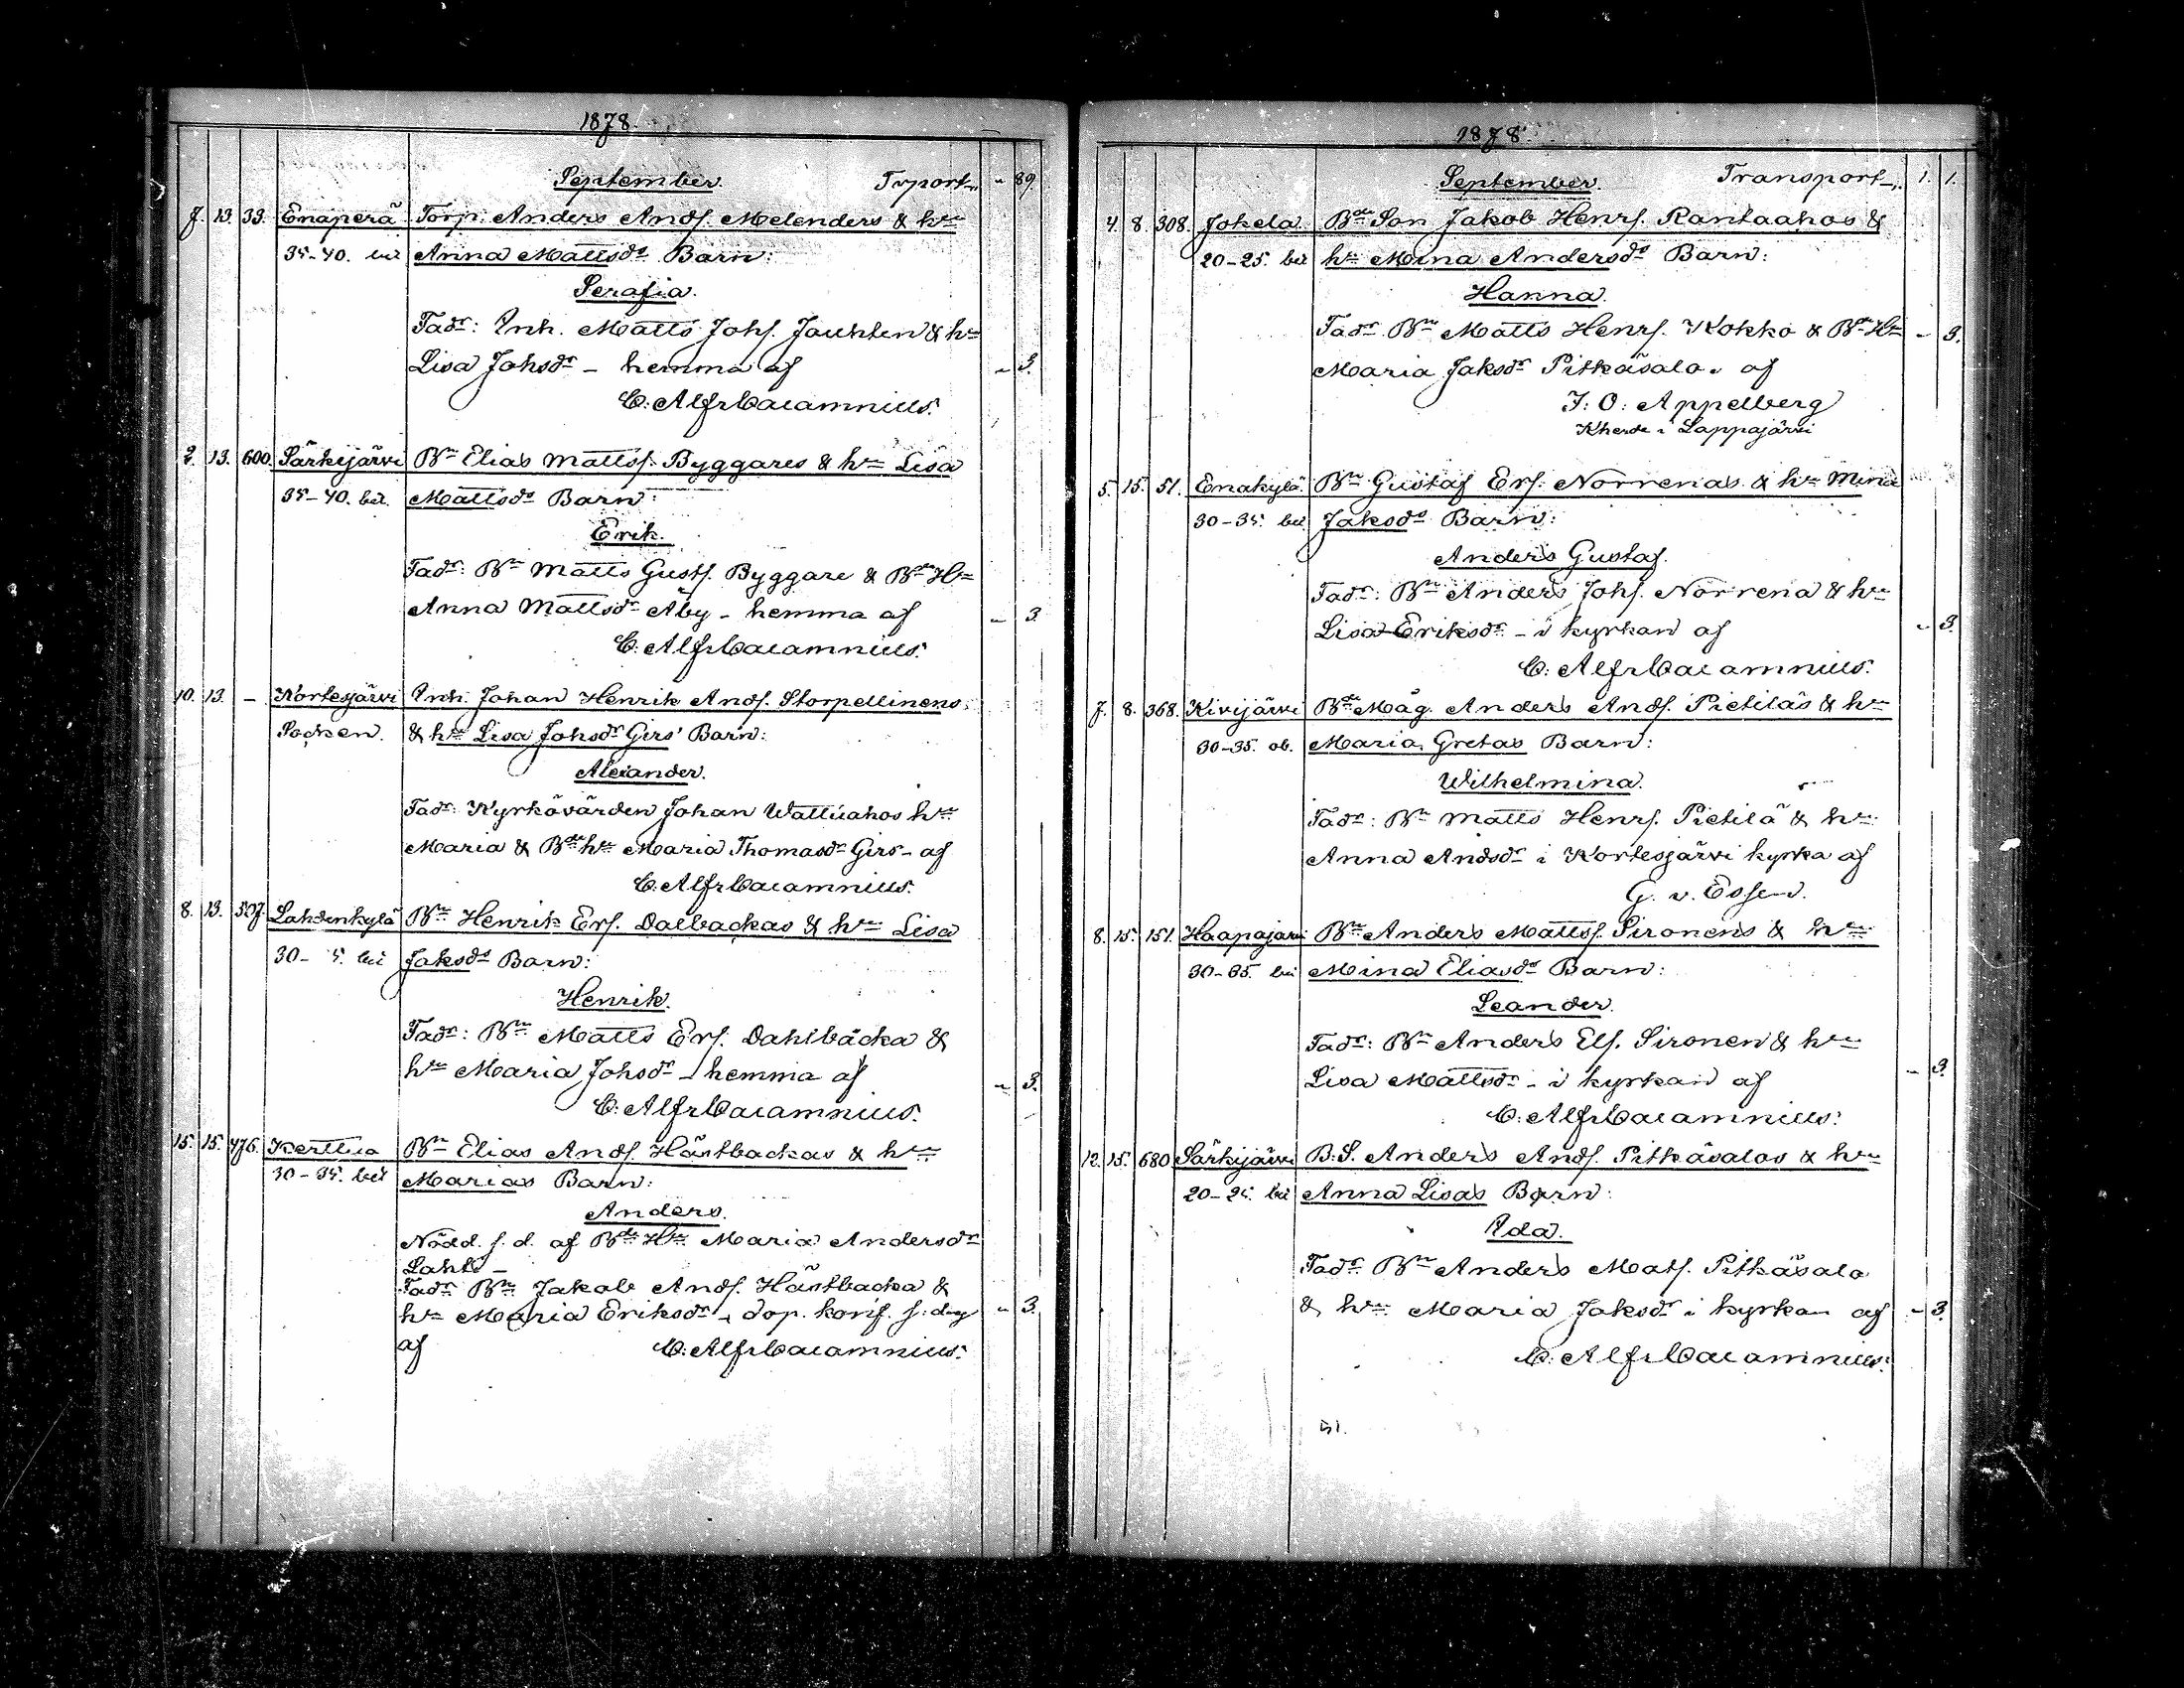 1878.
September. Trport „ 89.
7. 13. 33. Enaperä Torp. Anders Andʃ. Melenders & hu
35-40. bei Anna Mattsdr Barn:
Serafia.
Fadr: Inh. Matts Johʃ. & hu
Lisa Johsdr – hemma af „ 3.
C: Alfr Cajamnius.
2. 13. 600. Särkijärvi Bn Elias Mattsʃ. Byggares & hu Lisa
35-40. bei. Mattsdr Barn:
Erik.
Fadr: Bn Matts Gustʃ. Byggare & Bde Hu
Anna Mattsdr Åby – hemma af „ 3.
C: Alfr Cajamnius.
10. 13. – Kortesjärvi Inh. Johan Henrik Andʃ. Storpellinens
Socken. & hu Lisa Johsdr Girs' Barn:
Alexander.
Fadr: Kyrkovärden Johan Walliahos hu
Maria & Bde hu Maria Thomasdr Girs – af
C. Alfr Cajamnius.
8. 13. 507. Lahdenkylä Bn Henrik Erʃ. Dalbackas & hu Lisa
30- 5. bei Jaksdr Barn:
Henrik.
Fadr: Bn Matts Erʃ. Dahlbacka &
hu Maria Johsdr – hemma af „ 3.
C: Alfr Cajamnius.
15. 15. 476. Kerttua Bn Elias Andʃ. Hästbackas & hu
30-35. bei Marias Barn:
Anders.
Nödd. s. d. af Bde Hu Maria Andersdr
Lahti –
Fadr Bn Jakob Andʃ. Hästbacka &
hu Maria Eriksdr, dop. konf. s: dag „ 3.
af C: Alfr Cajamnius.
1878.
September. Transport „ 1. 1.
4. 8. 308. Jokela Bde Son Jakob Henrʃ. Rantaahos &
20-25. bei hu Mina Andersdr Barn:
Hanna.
Fadr Bn Matts Henrʃ. Kokko & Bde Hu „ 3.
Maria Jaksdr Pitkäsalo. af
J: O: Appelberg
Kherde i Lappajärvi
5. 15. 51. Emakylä. Bn Gustaf Erʃ. Norrenas & hu Mina
30-35. bei Jaksdr Barn:
Anders Gustaf.
Fadr: Bn Anders Johʃ. Norrena & hu
Lisa Eriksdr – i kyrkan af „ 3.
C: Alfr Cajamnius.
7. 8. 368. Kivijärvi Bde Måg. Anders Andʃ. Pietiläs & hu
30-35. ob. Maria Gretas Barn:
Wilhelmina.
Fadr: Bn Matts Henrʃ. Pietilä & hu
Anna Andsdr i Kortesjärvi kyrka af
G. v. Essen.
8. 15. 151. Haapajärvi Bn Anders Mattsʃ. Sironens & hu
30-35. bei Mina Eliasdr Barn:
Leander.
Fadr: Bn Anders Elʃ. Sironen & hu
Lisa Mattsdr – i kyrkan af „ 3.
C: Alfr Cajamnius.
12. 15. 680 Särkijärvi B. S. Anders Andʃ. Pitkäsalos & hu
20-25. bei Anna Lisas Barn:
Ida.
Fadr Bn Anders Matʃ. Pitkäsalo
& hu Maria Jaksdr i kyrkan af „ 3.
C: Alfr Cajamnius.